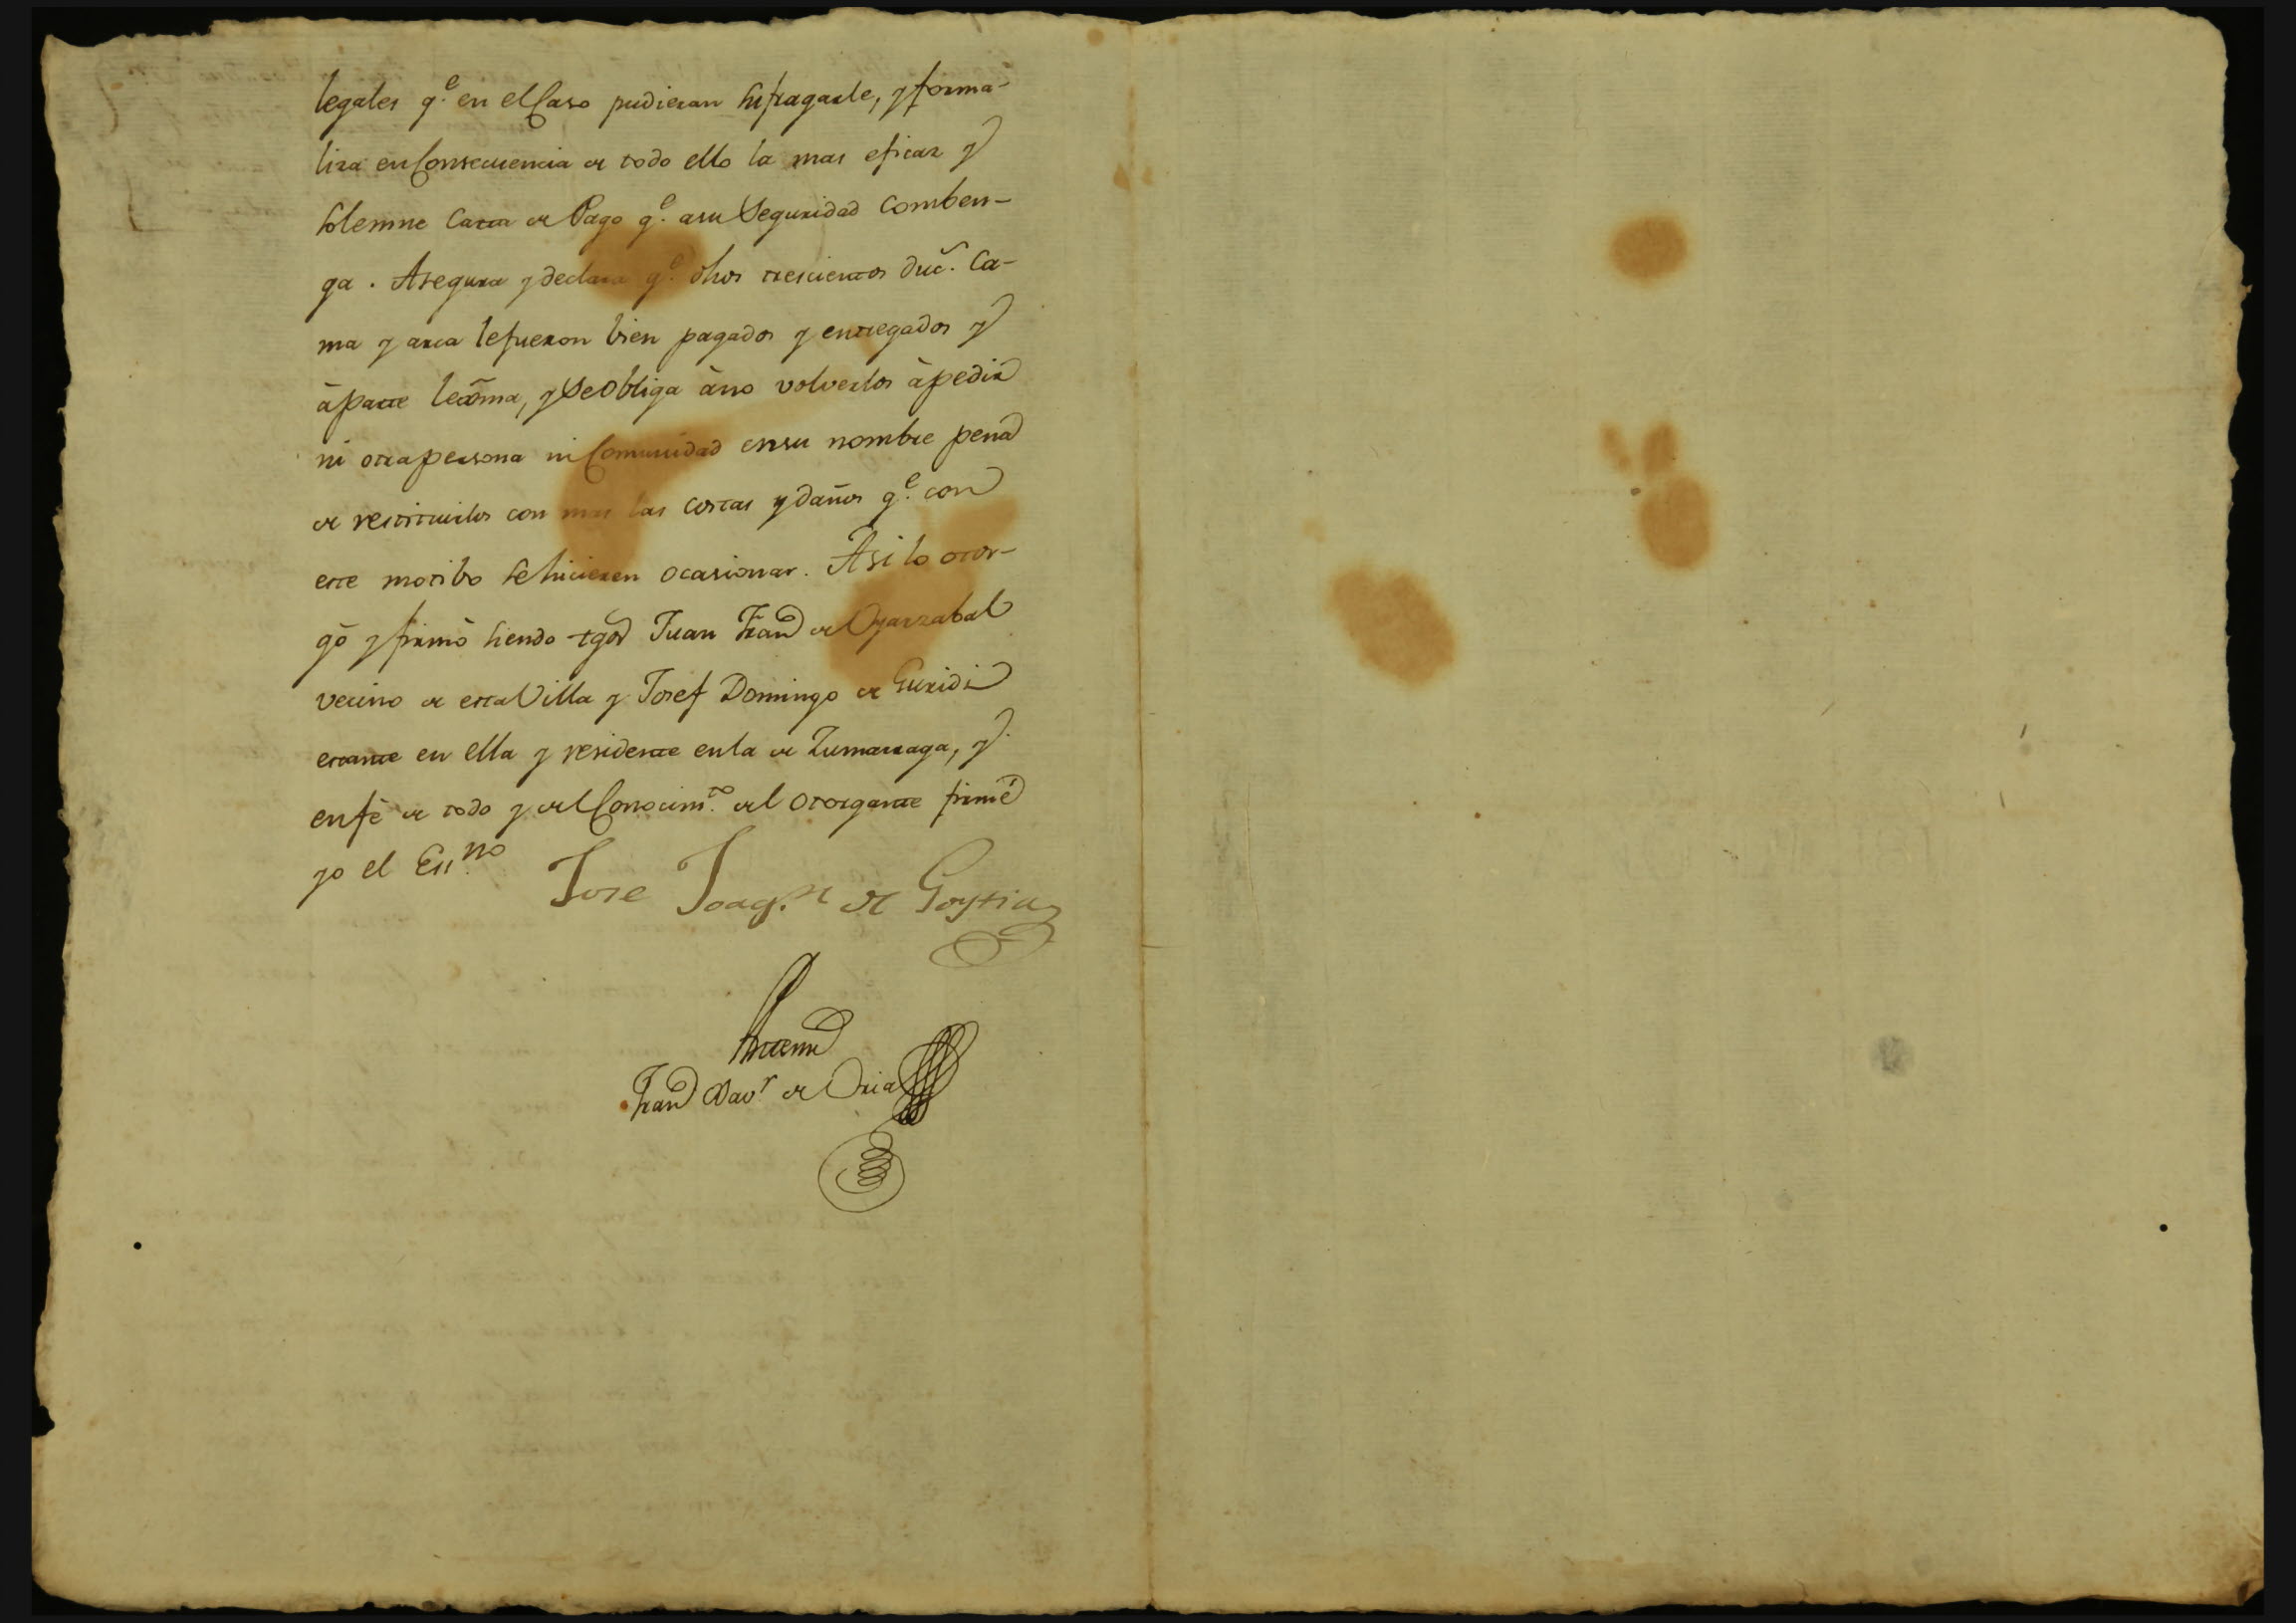 legales q.e en el Caso pudieran sufragarle, y forma-
liza en Consecuencia de todo ello la mas eficaz y
solemne Carta de Pago q.e a su Seguridad comben-
ga. Asegura y declara q.e dhos trescientos duc.s Ca-
ma y arca le fueron bien pagados y entregados y
à parte lexma, y Se obliga àno volverlos à pedir
ni otra persona ni Comunidad en su nombre pena
de restituirlos con mas las costas y daños q.e con
este motibo se hicieren ocasionar. Asi lo otor-
gò y firmò siendo tgos Juan Fran.co de Oyarzabal
vecino de esta Villa y Josef Domingo de Guridi
estante en ella y residente en la de Zumarraga, y
en fè de todo y del Conocim.to del otorgante firmé
yo el Ess.no
Jose Joaq.n de Goytia
Antemi
Fran.co Xav.r de Oria